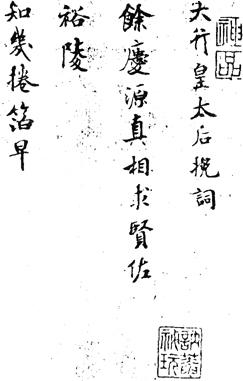 神品
大行皇太后挽詞
餘慶源真相求賢佐
裕陵
知幾捲箔早